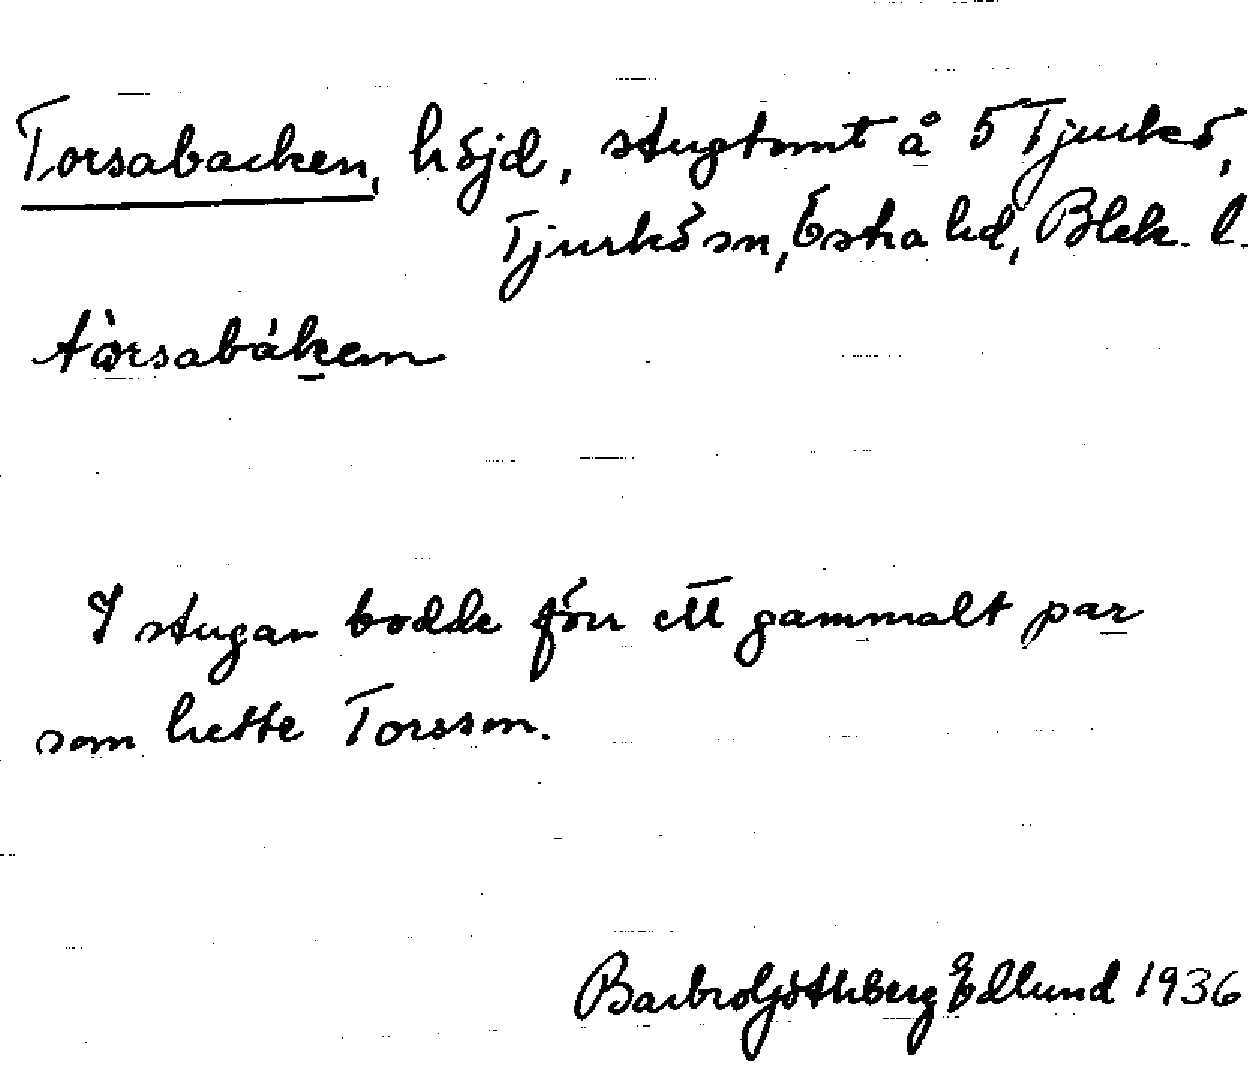 Torsabacken, höjd, stugtomt å 5 Tjurkö,
Tjurkö sn, Östra hd, Blek. l.
tòrsabákem
I stugan bodde förr ett gammalt par
som hette Torsson.
Barbro Göthberg Edlund 1936